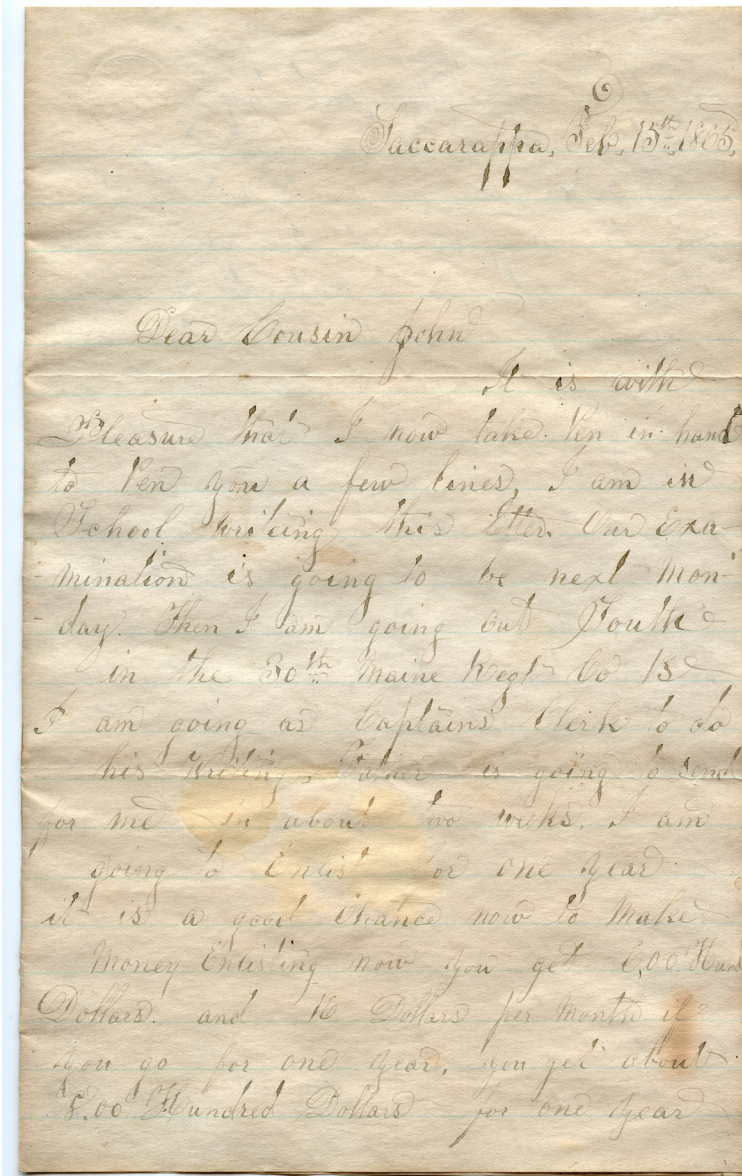 Saccarappa, Feb, 15th, 1865,
Dear Cousin John
It is with
Pleasure that I now take Pen in hand
to Pen you a few lines, I am in
School Writeing this Letter. Our Exa-
mination is going to be next Mon-
day. Then I am going out South
in the 30th Maine Regt Co
I am going as Captains Clerk to do
his Writing, Father is going to send
for me in about two weeks. I am
going to Enlist for one year.
it is a good Chance now to Make
Money Enlisting now you get 6.00 Hund
Dollars. and 16 Dollars per Month if
you go for one year, you get about
8.00 Hundred Dollars for one year